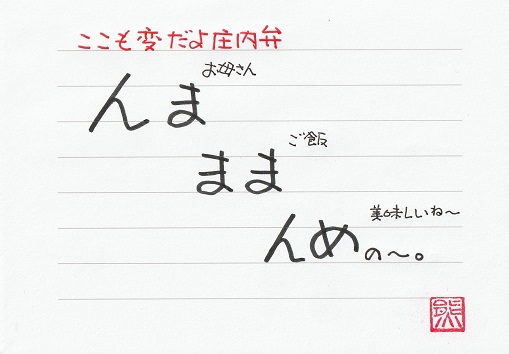 ここも変だよ庄内弁
お母さん
んま
ご飯
まま
美味しいね～
んめの～。